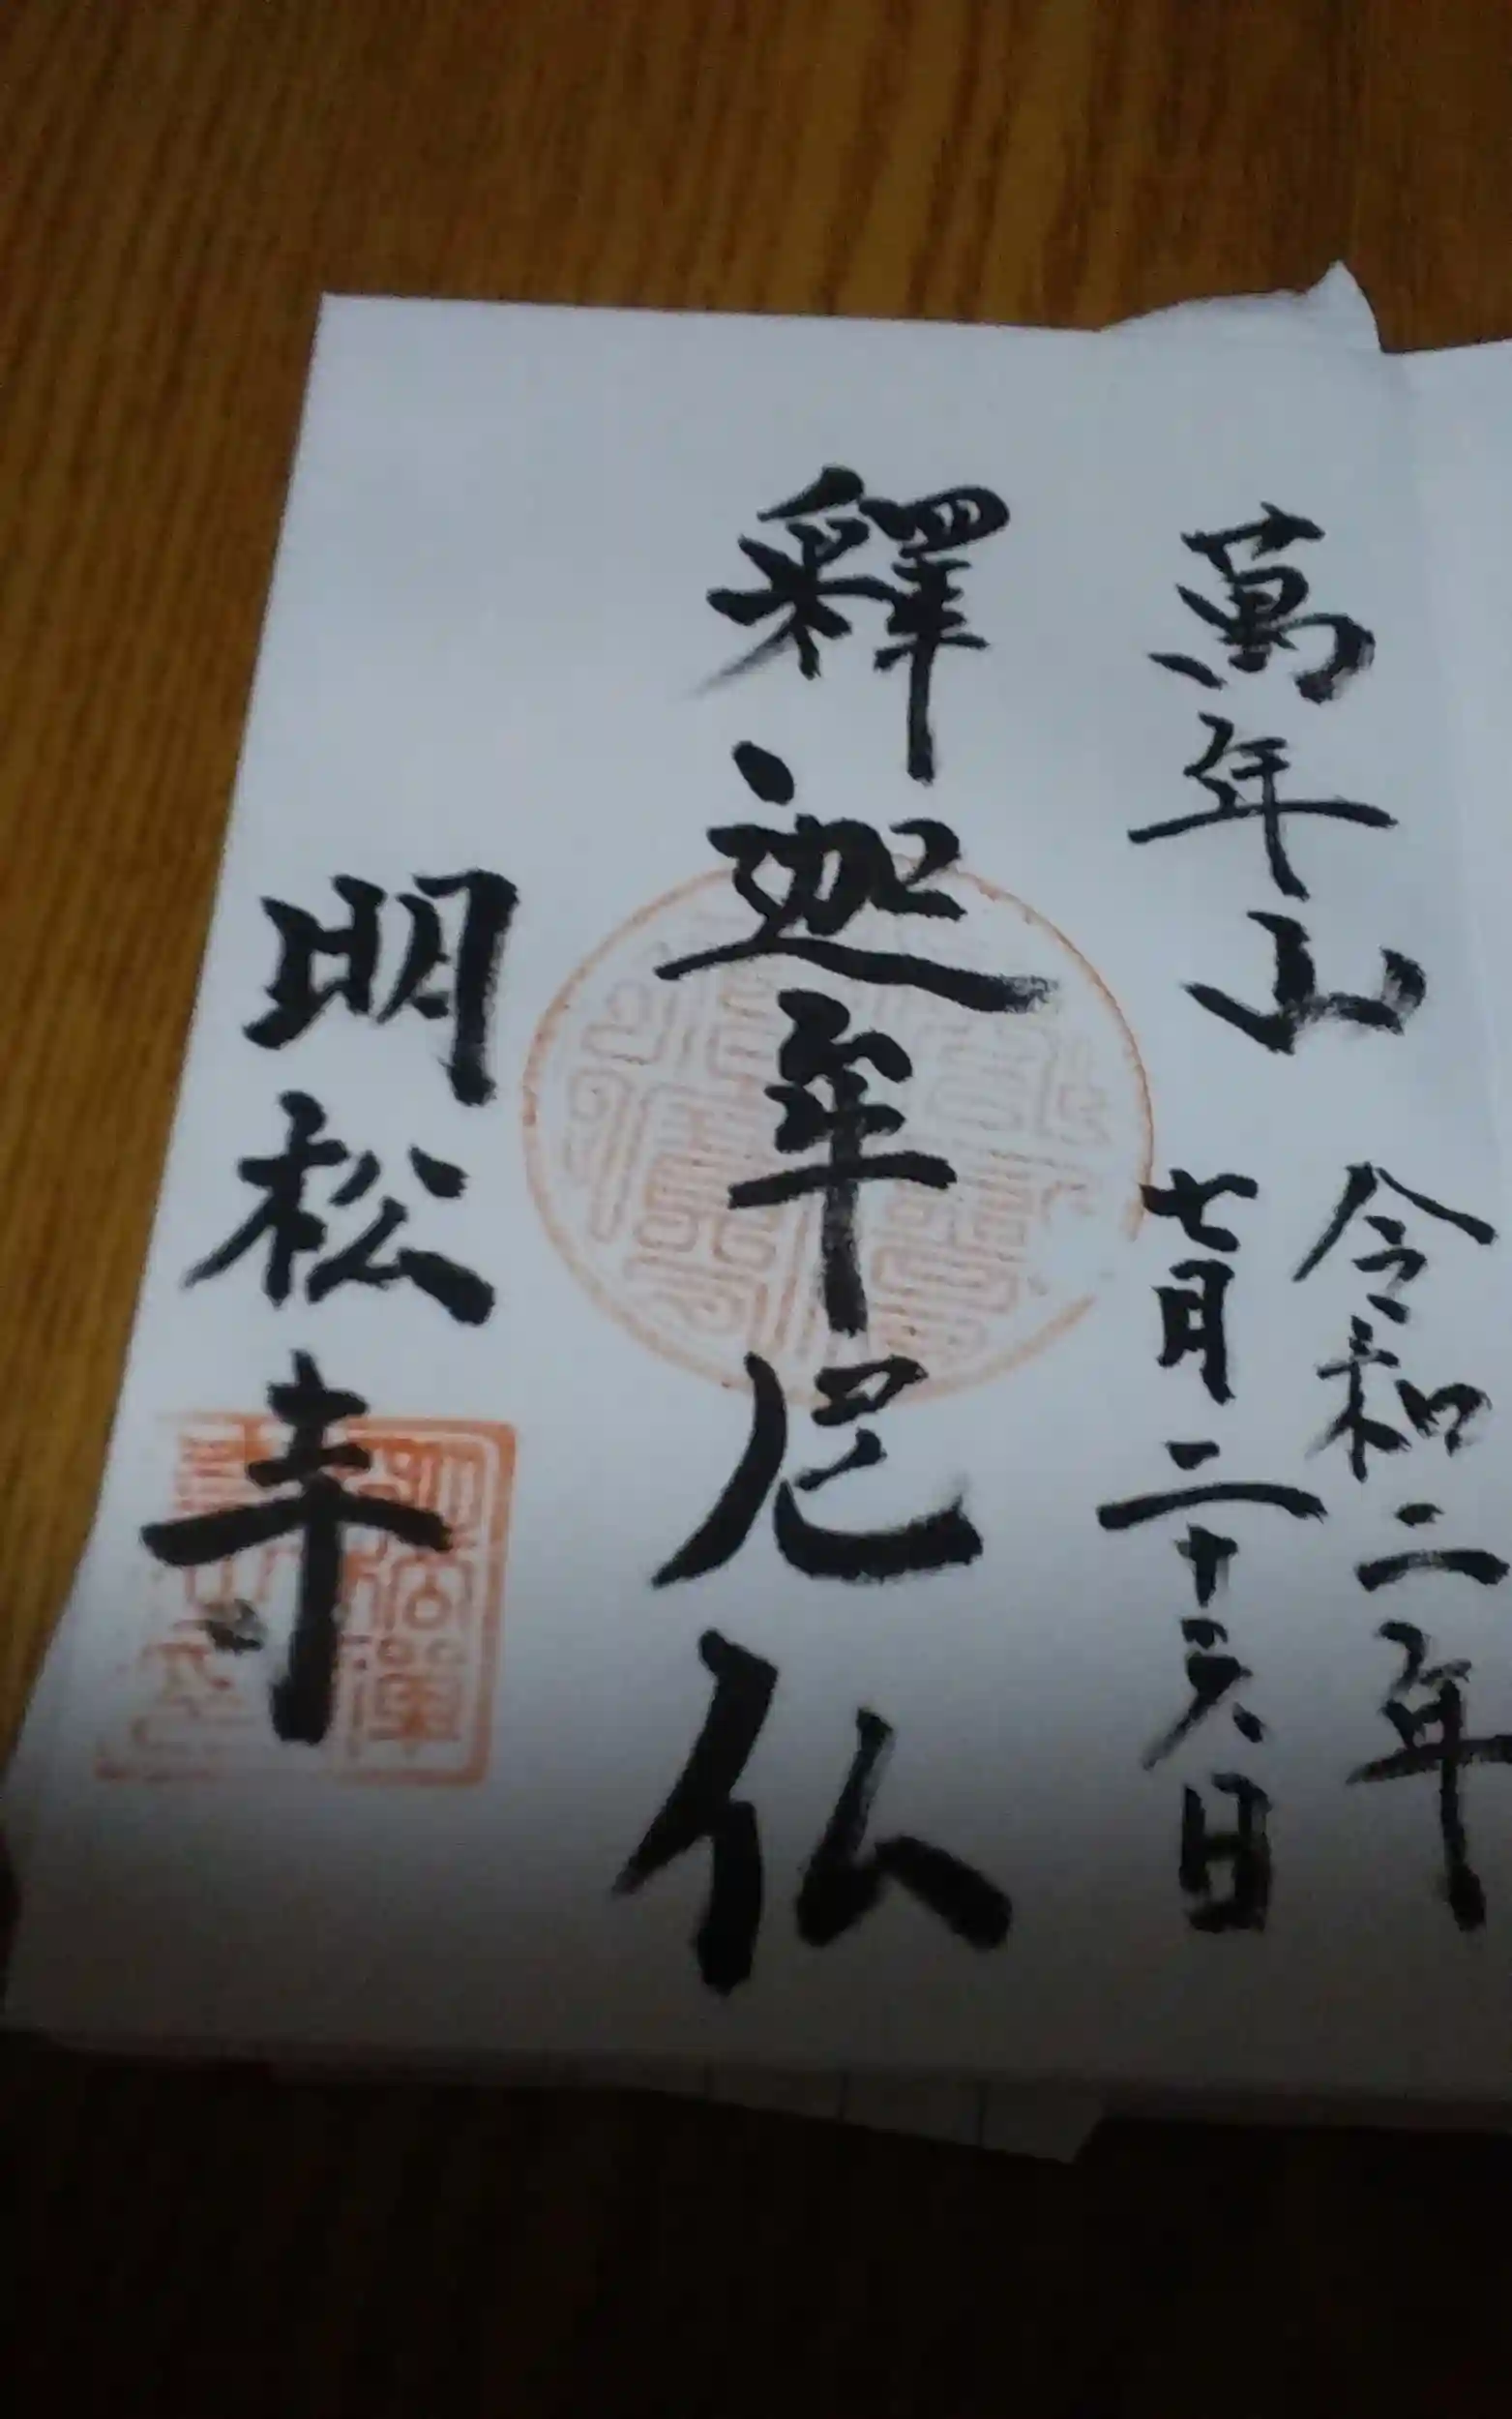 令和二年
萬年山
七月二十六日
釋迦牟尼仏
明松寺